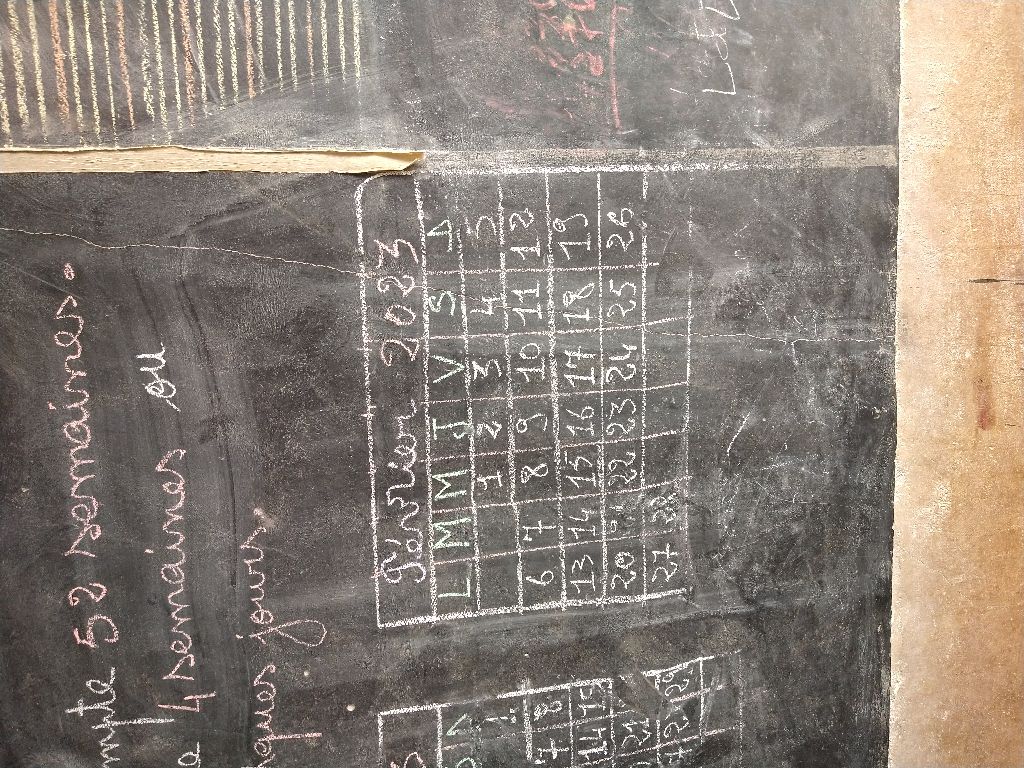 mpte 52 semaines.
4 semaines ou
ques jours.
Février 2023
L M M J V S D
1 2 3 4 5
6 7 8 9 10 11 12
13 14 15 16 17 18 19
20 22 23 24 25 26
27 28
D
1
7 8
14 15
21
29